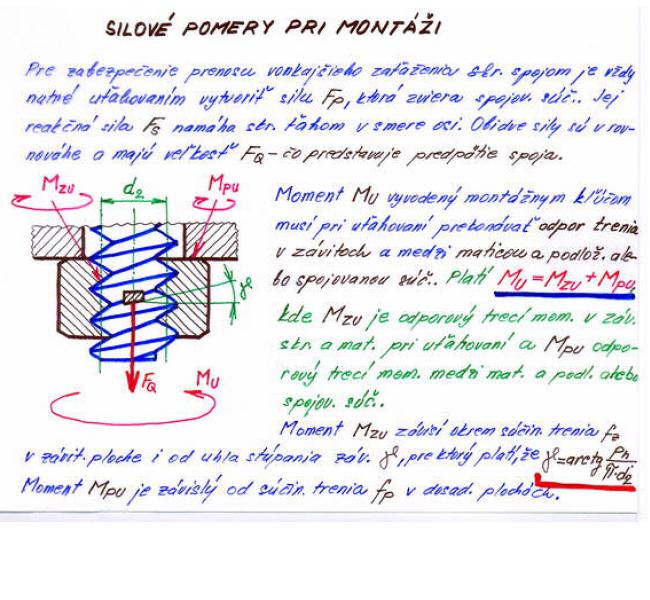 SILOVÉ POMERY PRI MONTÁŽI
Pre zabezpečenie prenosu vonkajšieho zaťaženia skr. spojom je vždy
nutné uťahovaním vytvoriť silu Fp, ktorá zviera spojov. súč.. Jej
reakčná sila Fs namáha skr. ťahom v smere osi. Obidve sily sú v rov-
nováhe a majú veľkosť FQ – čo predstavuje predpätie spoja.
MZU
d2
MPU
γ
FQ
MU
Moment MU vyvodený montážnym kľúčom
musí pri uťahovaní prekonávať odpor trenia
v závitoch a medzi maticou a podlož. ale-
bo spojovanou súč.. Platí MU = MZU + MPU,
kde MZU je odporový trecí mom. v záv.
skr. a mat. pri uťahovaní a MPU odpo-
rový trecí mom. medzi mat. a podl. alebo
spojov. súč..
Moment MZU závisí okrem súčin. trenia fz
v závit. ploche i od uhla stúpania záv. γ, pre ktorý platí, že γ = arctg Ph / π·d2
Moment MPU je závislý od súčin. trenia fp v dosad. plochách.